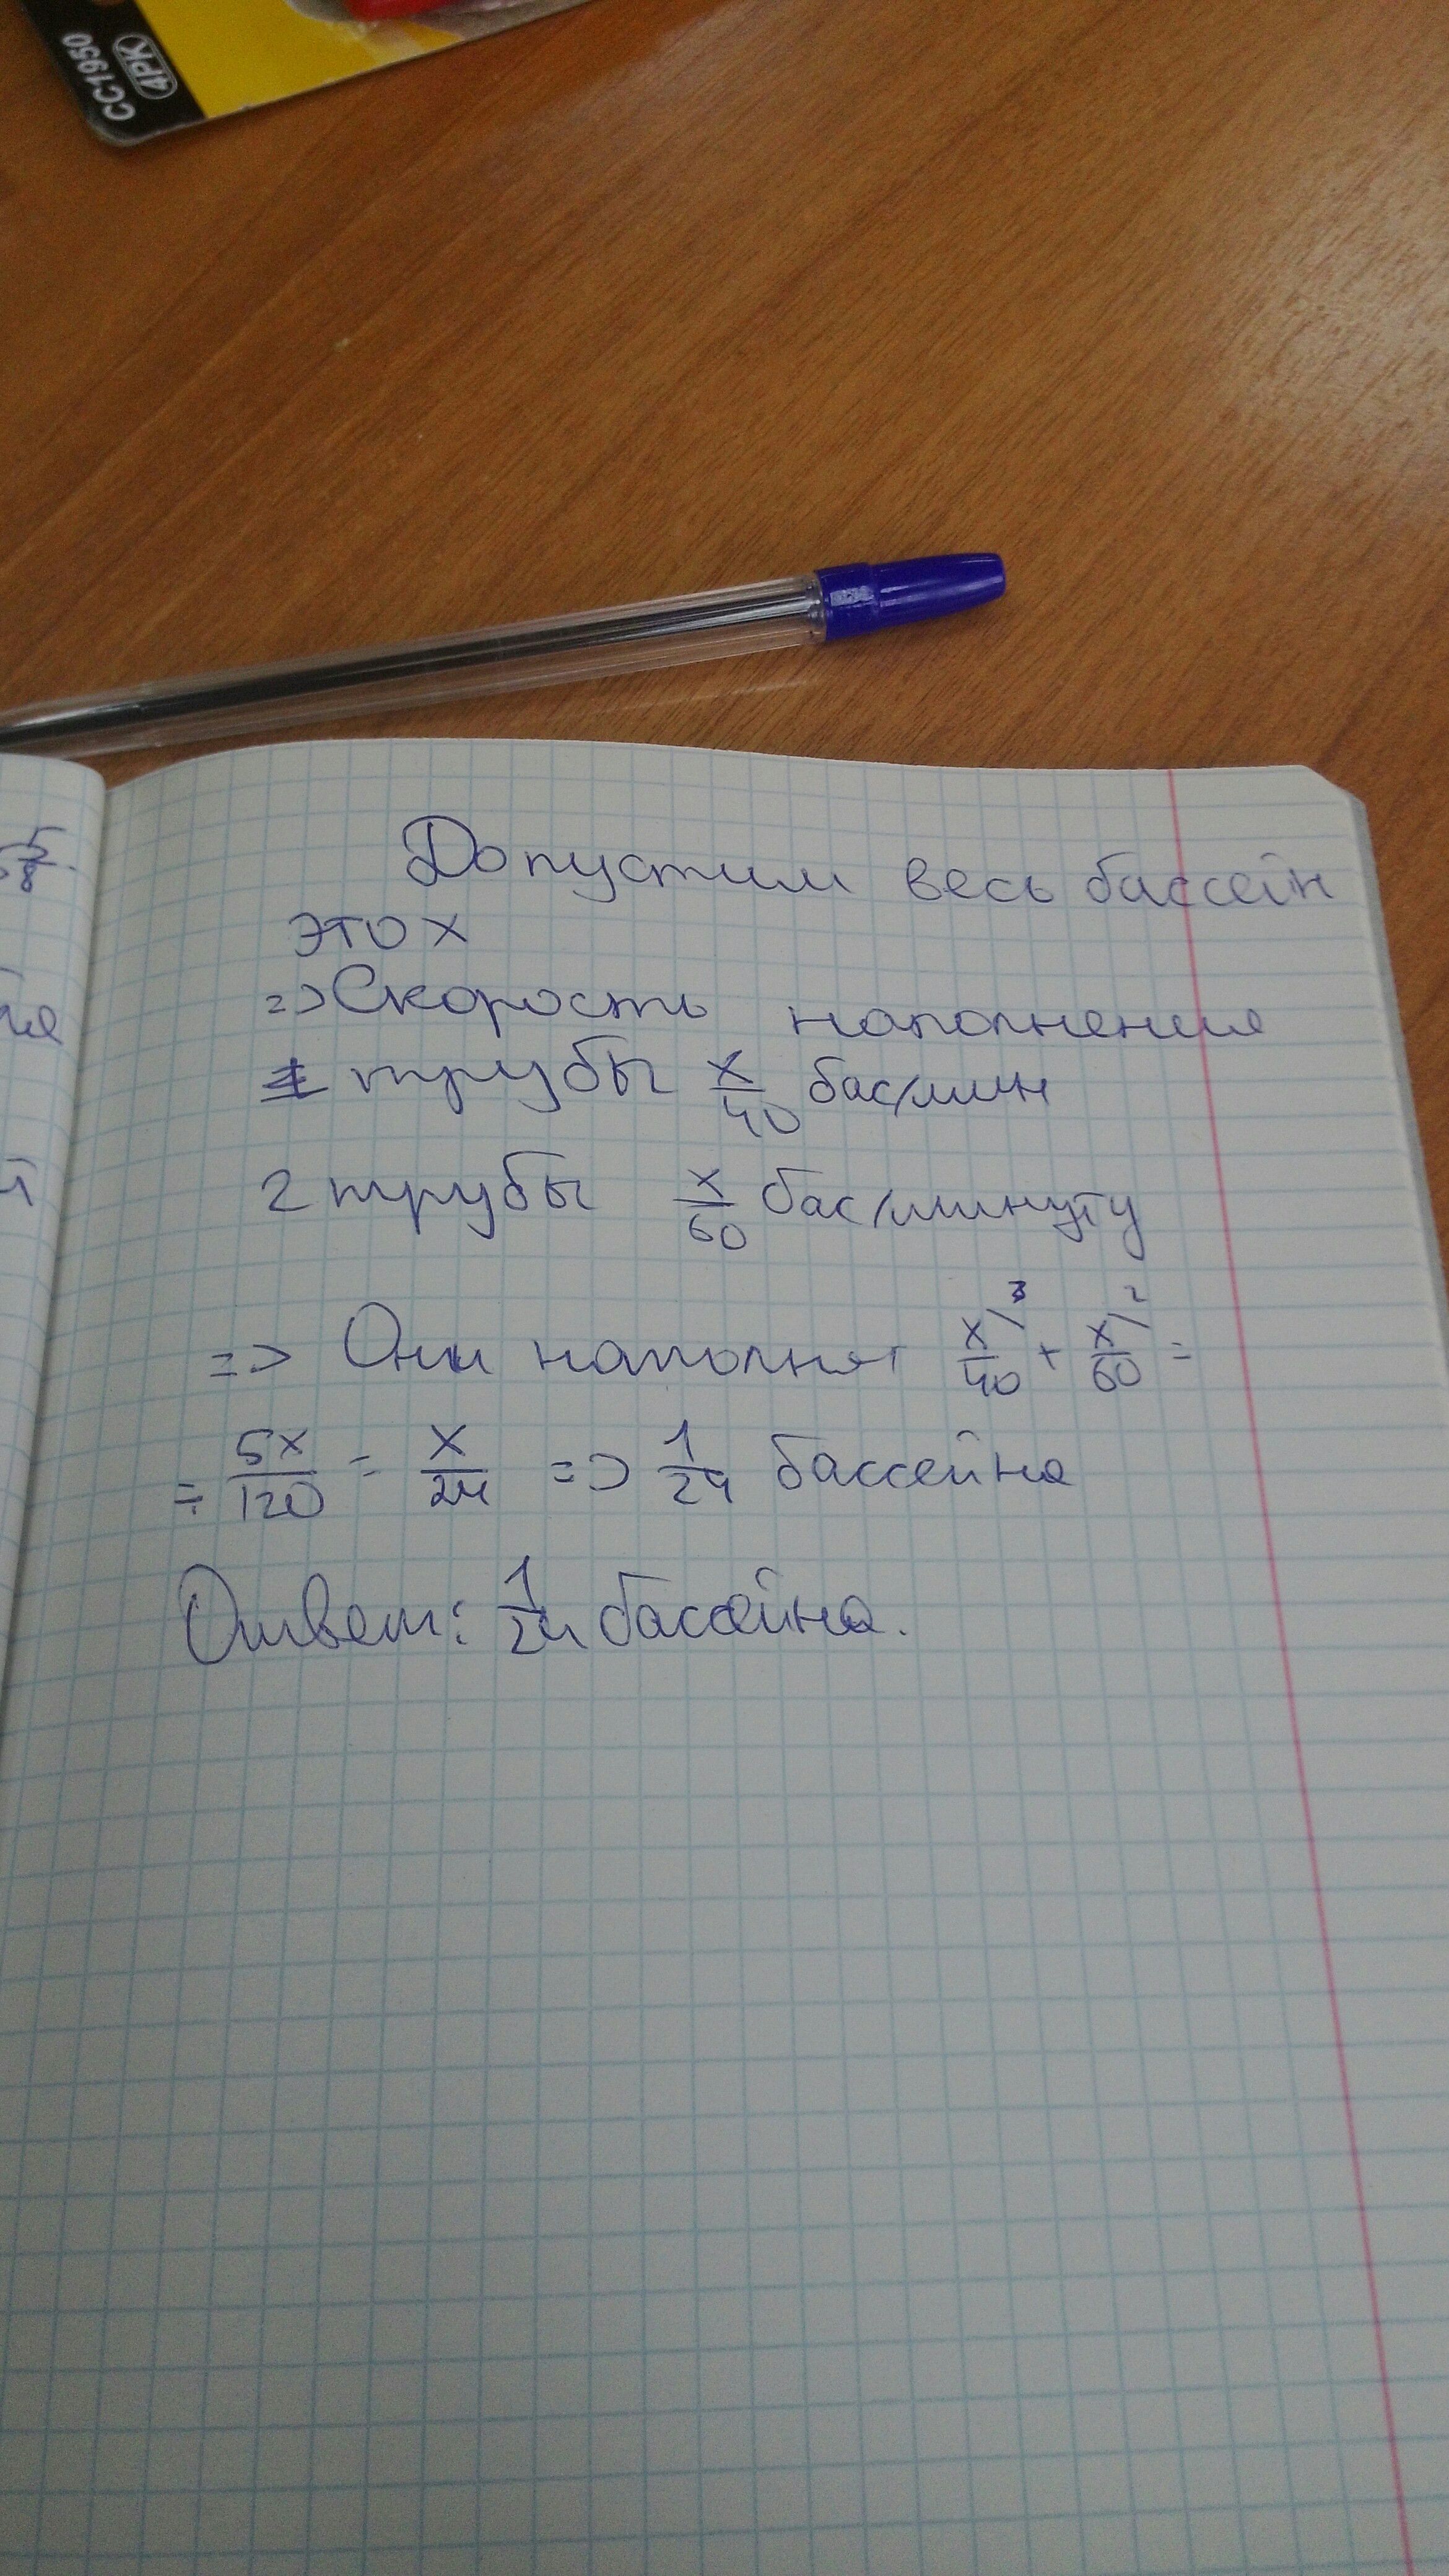 CC1950
4PK
5/8
Допустим весь бассейн
это x
=> Скорость наполнения
1 трубы x/40 бас/мин
2 трубы x/60 бас/минуту
=> Они наполнят x/40 \3 + x/60 \2 =
= 5x/120 = x/24 => 1/24 бассейна
Ответ: 1/24 бассейна.